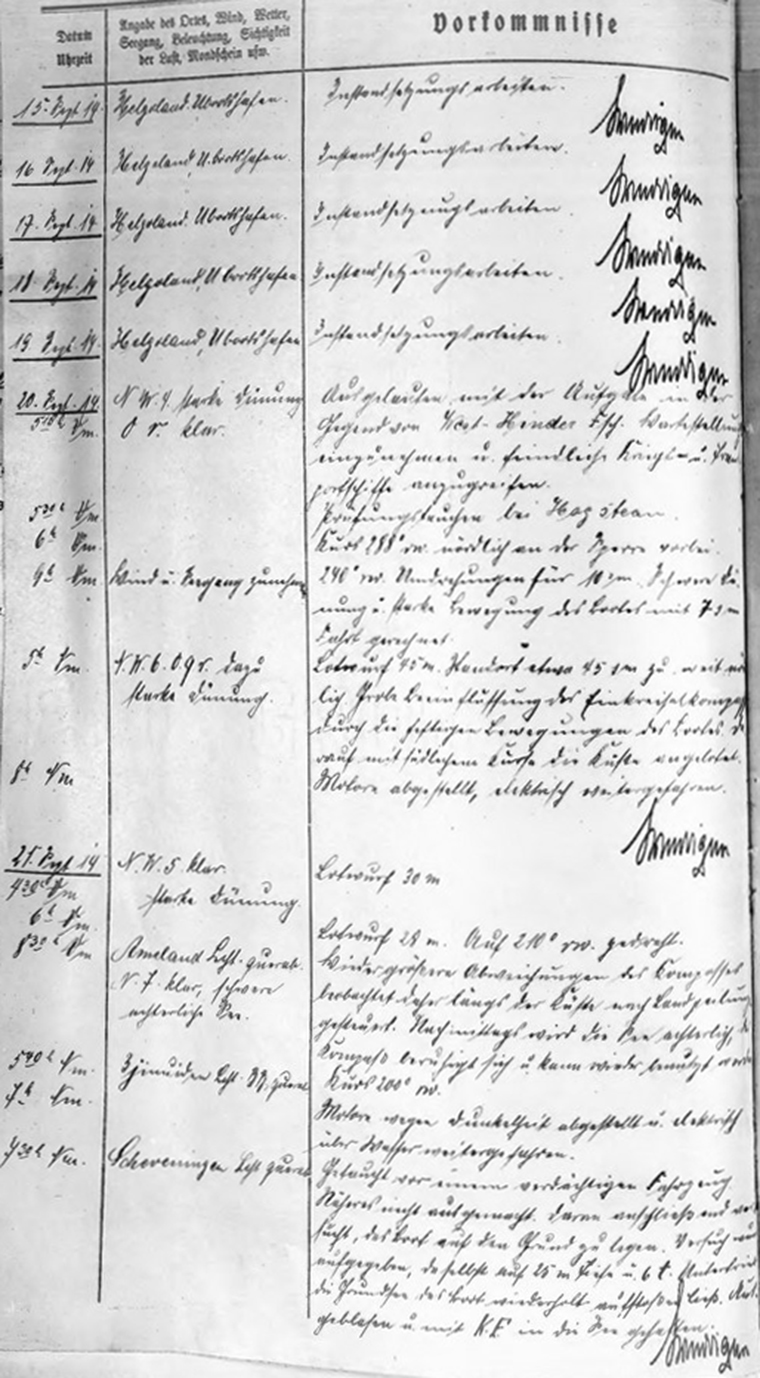 Datum
Uhrzeit
Angabe des Ortes, Wind, Wetter,
Seegang, Beleuchtung, Sichtigkeit
der Luft, Mondschein usw.
Vorkommnisse
15. Sept. 14
Helgoland, Ubootshafen.
Instandsetzungsarbeiten.
Weddigen
16 Sept. 14
Helgoland, Ubootshafen.
Instandsetzungsarbeiten.
Weddigen
17. Sept. 14
Helgoland. Ubootshafen.
Instandsetzungsarbeiten.
Weddigen
18 Sept. 14
Helgoland, Ubootshafen
Instandsetzungsarbeiten.
Weddigen
19 Sept. 14
Helgoland, Ubootshafen
Instandsetzungsarbeiten.
Weddigen
20. Sept. 14.
Vm.
N. W. 4. starke Dünung
klar.
Ausgelaufen mit der Aufgabe in der
Gegend von West-Hinder Fsch. Wartestellung
einzunehmen u. feindliche Kriegs- u. Trans
portschiffe anzugreifen.
5 30 h Vm
Prüfungstauchen bei Hog stean.
6 h Vm.
Kurs 288° rw. nördlich an der Sperre vorbei.
9 h Vm.
Wind u. Seegang zunehm
240° rw. Umdrehungen für 10 sm. Schwere Dü-
nung u. starke Bewegung des Bootes mit 7 sm
Fahrt gerechnet.
5 h Nm.
N. W. 6. 0 9 v. dazu
starke Dünung.
Lotwurf 45 m. Standort etwa 45 sm zu weit nörd
lich. Grobe Beeinflussung des Einkreiselkompass
durch die heftigen Bewegungen des Bootes. Da
rauf mit südlichem Kurse die Küste angelotet.
8 h Nm
Motore abgestellt, elektrisch weitergefahren.
Weddigen
21. Sept 14
4 30 h Vm
N. W. 5 klar.
starke Dünung.
Lotwurf 30 m
6 h Vm.
Lotwurf 28 m. Auf 210° rw. gedreht.
8 30 h Vm
Ameland Lcht. querab.
N. 7. klar, schwere
achterliche See.
Wieder grössere Abweichungen des Kompasses
beobachtet daher längs der Küste nach Landpeilung
gesteuert. Nachmittags wird die See achterlich, der
Kompass beruhigt sich u. kann wieder benutzt werde
5 40 h Nm.
Ymuiden Lcht. querab
Kurs 200° rw.
7 h Nm.
Motore wegen Dunkelheit abgestellt u. elektrisch
über Wasser weitergefahren.
9 30 h Nm.
Scheveningen Lcht querab
Getaucht vor einem verdächtigen Fahrzeug.
Näheres nicht ausgemacht. daran anschließend ver
sucht, das Boot auf den Grund zu legen. Versuch
aufgegeben, da selbst auf 25 m Tiefe u. 6 t. Untertrieb
die Grundsee das Boot wiederholt aufstossen ließ. Aus-
geblasen u. mit K.F. in die See gehalten.
Weddigen